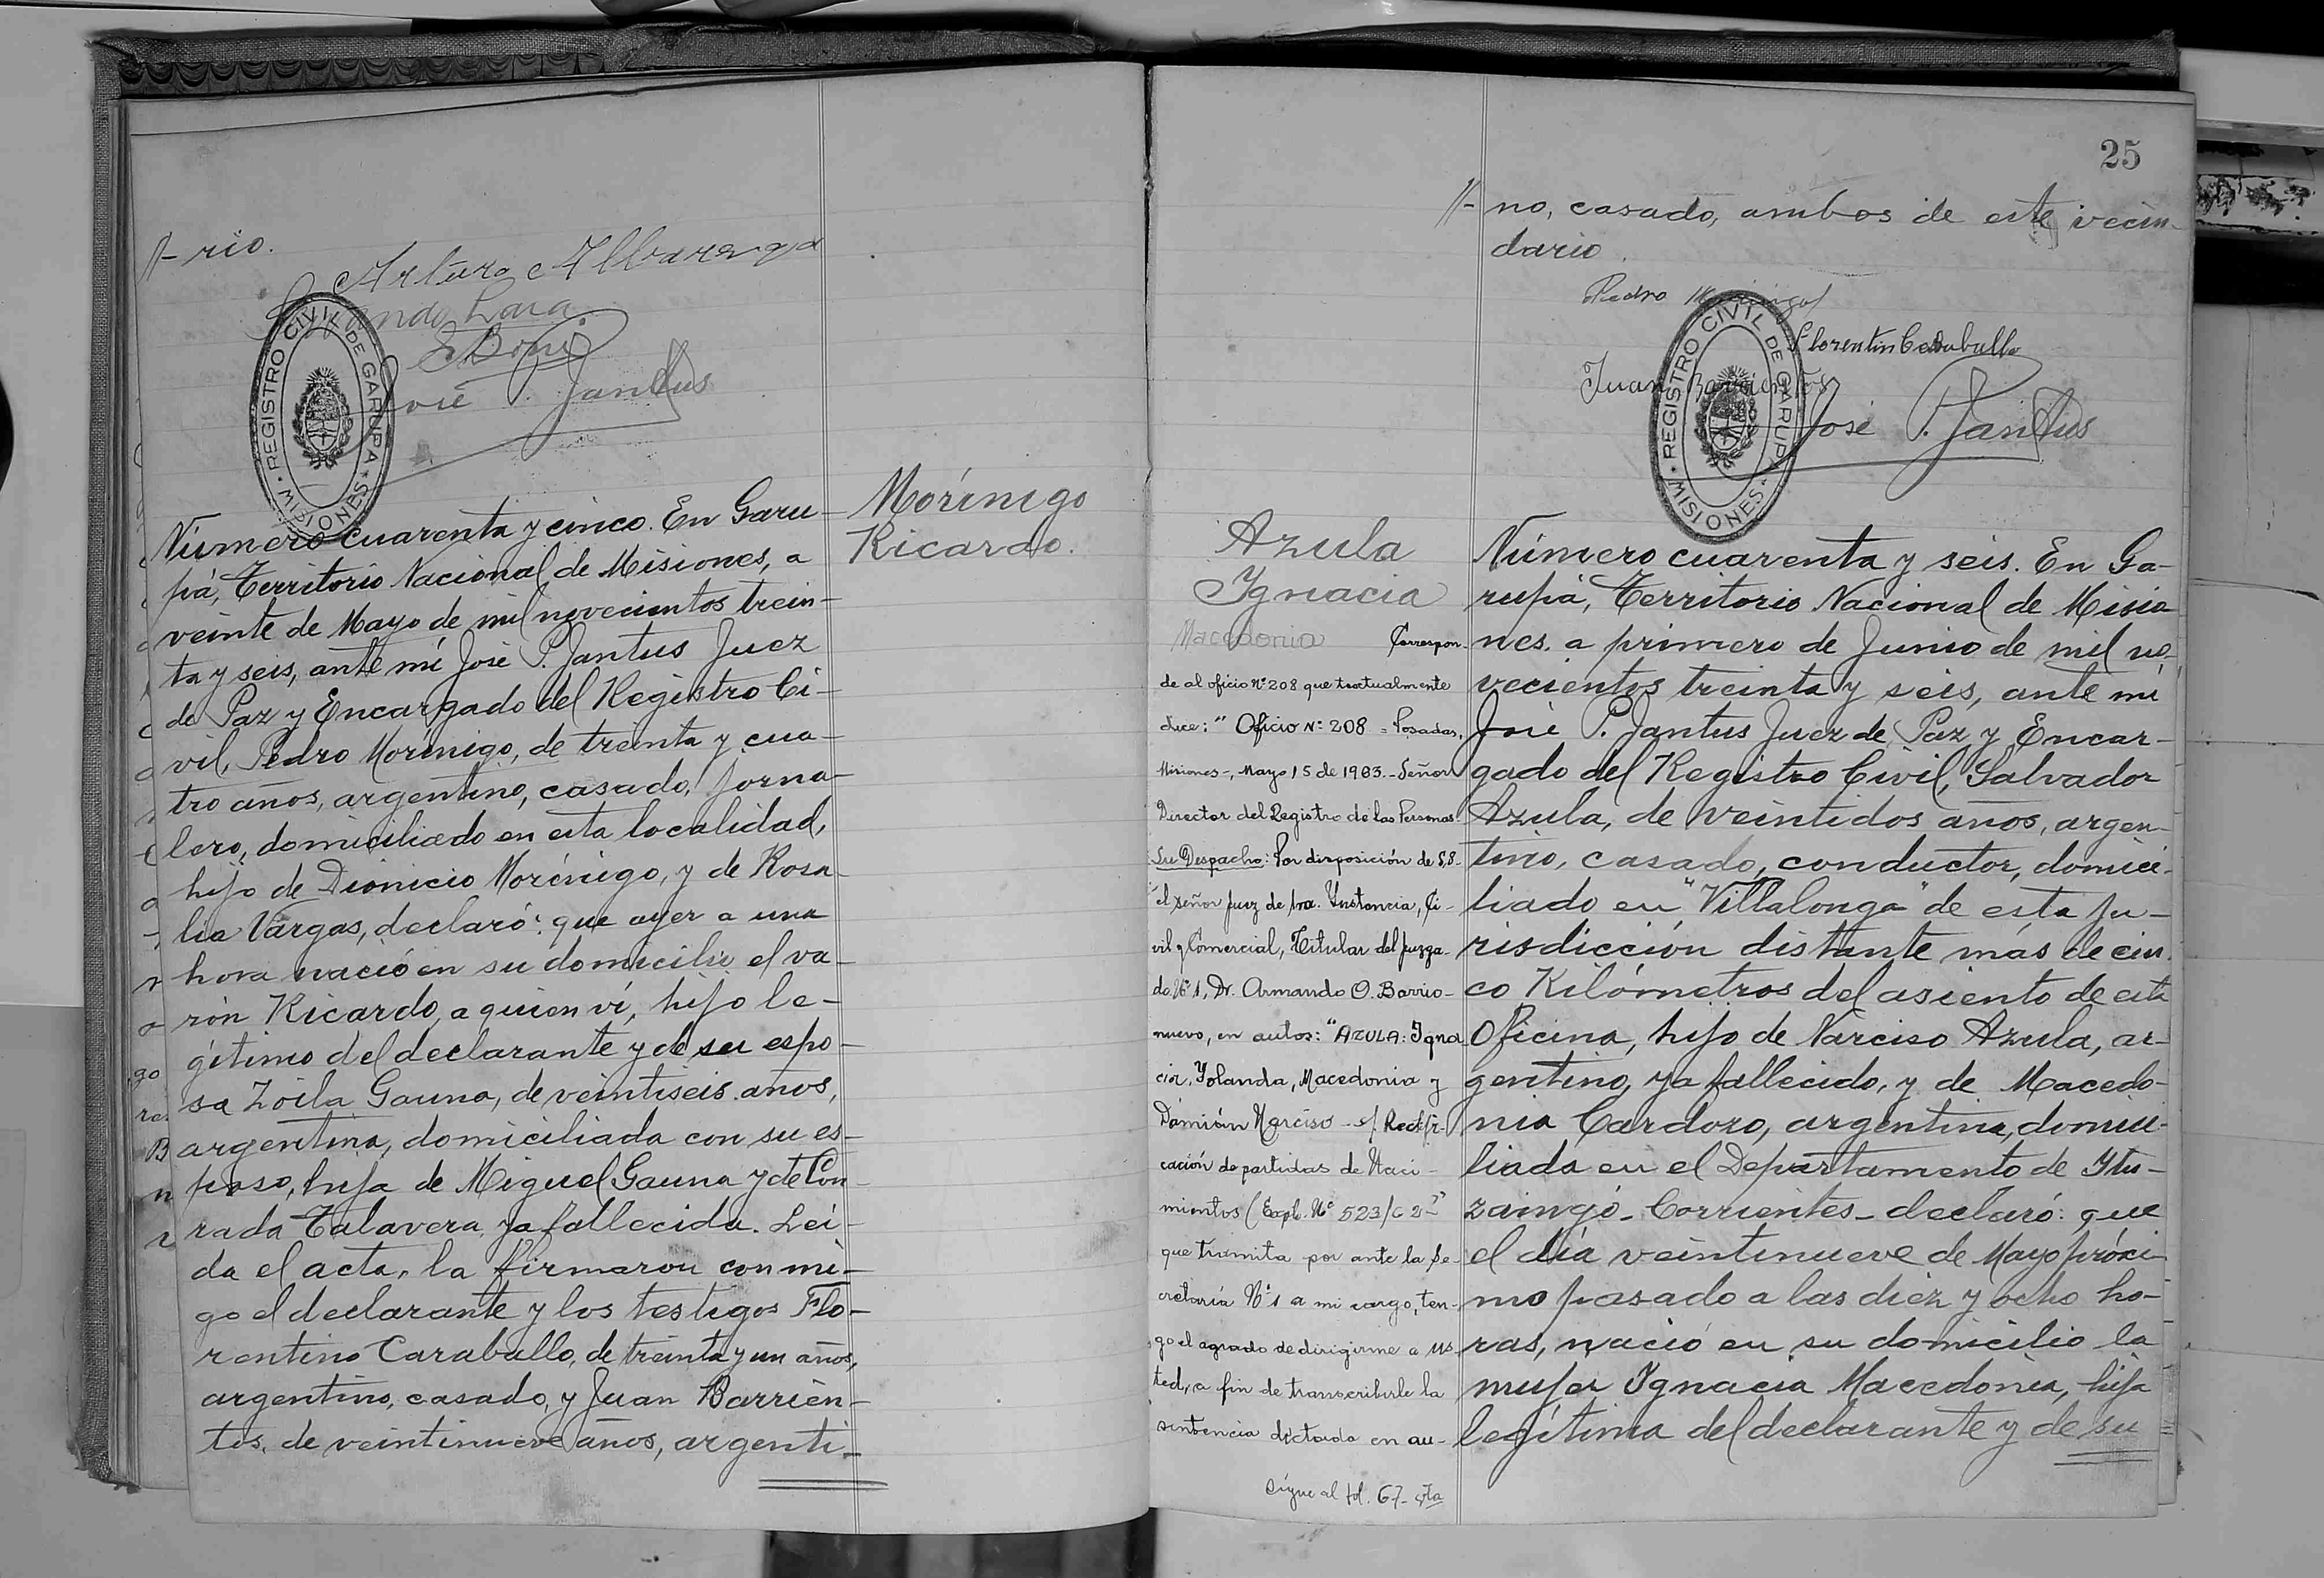 //- rio.
Arturo Albarenga
Lara
José P. Jantus
REGISTRO CIVIL DE GARUPA
MISIONES
Morínigo
Ricardo.
Número cuarenta y cinco. En Garu-
pá, Territorio Nacional de Misiones, a
veinte de Mayo de mil novecientos trein-
ta y seis, ante mí José P. Jantus Juez
de Paz y Encargado del Registro Ci-
vil, Pedro Morínigo, de treinta y cua-
tro años, argentino, casado, jorna-
lero, domiciliado en esta localidad,
hijo de Dionicio Morínigo, y de Rosa-
lia Vargas, declaró: que ayer a una
hora nació en su domicilio el va-
rón Ricardo, a quien ví, hijo le-
gítimo del declarante y de su espo-
sa Zoila Gauna, de veintiseis años,
argentina, domiciliada con su es-
poso, hija de Miguel Gauna y de Con-
rada Talavera, ya fallecida. Leí-
da el acta, la firmaron con mi-
go el declarante y los testigos Flo-
rentino Caraballo, de treinta y un años,
argentino, casado, y Juan Barrien-
tos, de veintinueve años, argenti-
25
//- no, casado, ambos de este vecin-
dario.
Pedro Morínigo
Florentin Caraballo
Juan Barrientos
José P. Jantus
REGISTRO CIVIL DE GARUPA
MISIONES
Azula
Ignacia
Macedonia Correspon-
de al oficio Nº 208 que textualmente
dice: " Oficio Nº 208 = Posadas,
Misiones-, Mayo 15 de 1963.- Señor
Director del Registro de las Personas-
Su Despacho: Por disposición de S.S.
el señor Juez de 1ra. Instancia, Ci-
vil y Comercial, Titular del Juzga-
do Nº 1, Dr. Armando O. Barrio-
nuevo, en autos: "AZULA: Igna
cia, Yolanda, Macedonia y
Damián Narciso - s/ Rectifi-
cación de partidas de Naci-
mientos (Expte. Nº 523/
que tramita por ante la Se-
cretaría Nº 1 a mi cargo, ten-
go el agrado de dirigirme a us-
ted, a fin de transcribirle la
sentencia dictada en au-
sigue al fol. 67- vta
Número cuarenta y seis. En Ga-
rupá, Territorio Nacional de Misio
nes. a primero de Junio de mil no-
vecientos treinta y seis, ante mí
José P. Jantus Juez de Paz y Encar-
gado del Registro Civil, Salvador
Azula, de veintidos años, argen-
tino, casado, conductor, domici-
liado en "Villalonga" de esta ju-
risdicción distante más de cin-
co Kilómetros del asiento de esta
Oficina, hijo de Narciso Azula, ar-
gentino, ya fallecido, y de Macedo-
nia Cardozo, argentina, domici-
liada en el Departamento de Itu-
zaingó - Corrientes - declaró: que
el día veintinueve de Mayo próxi-
mo pasado a las diez y ocho ho-
ras, nació en su domicilio la
mujer Ignacia Macedonia, hija
legítima del declarante y de su